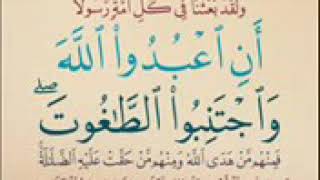 وَلَقَدْ بَعَثْنَا فِي كُلِّ أُمَّةٍ رَّسُولًا
أَنِ ٱعْبُدُوا۟ ٱللَّهَ
وَٱجْتَنِبُوا۟ ٱلطَّٰغُوتَ ۖ
فَمِنْهُم مَّنْ هَدَى ٱللَّهُ وَمِنْهُم مَّنْ حَقَّتْ عَلَيْهِ ٱلضَّلَٰلَةُ